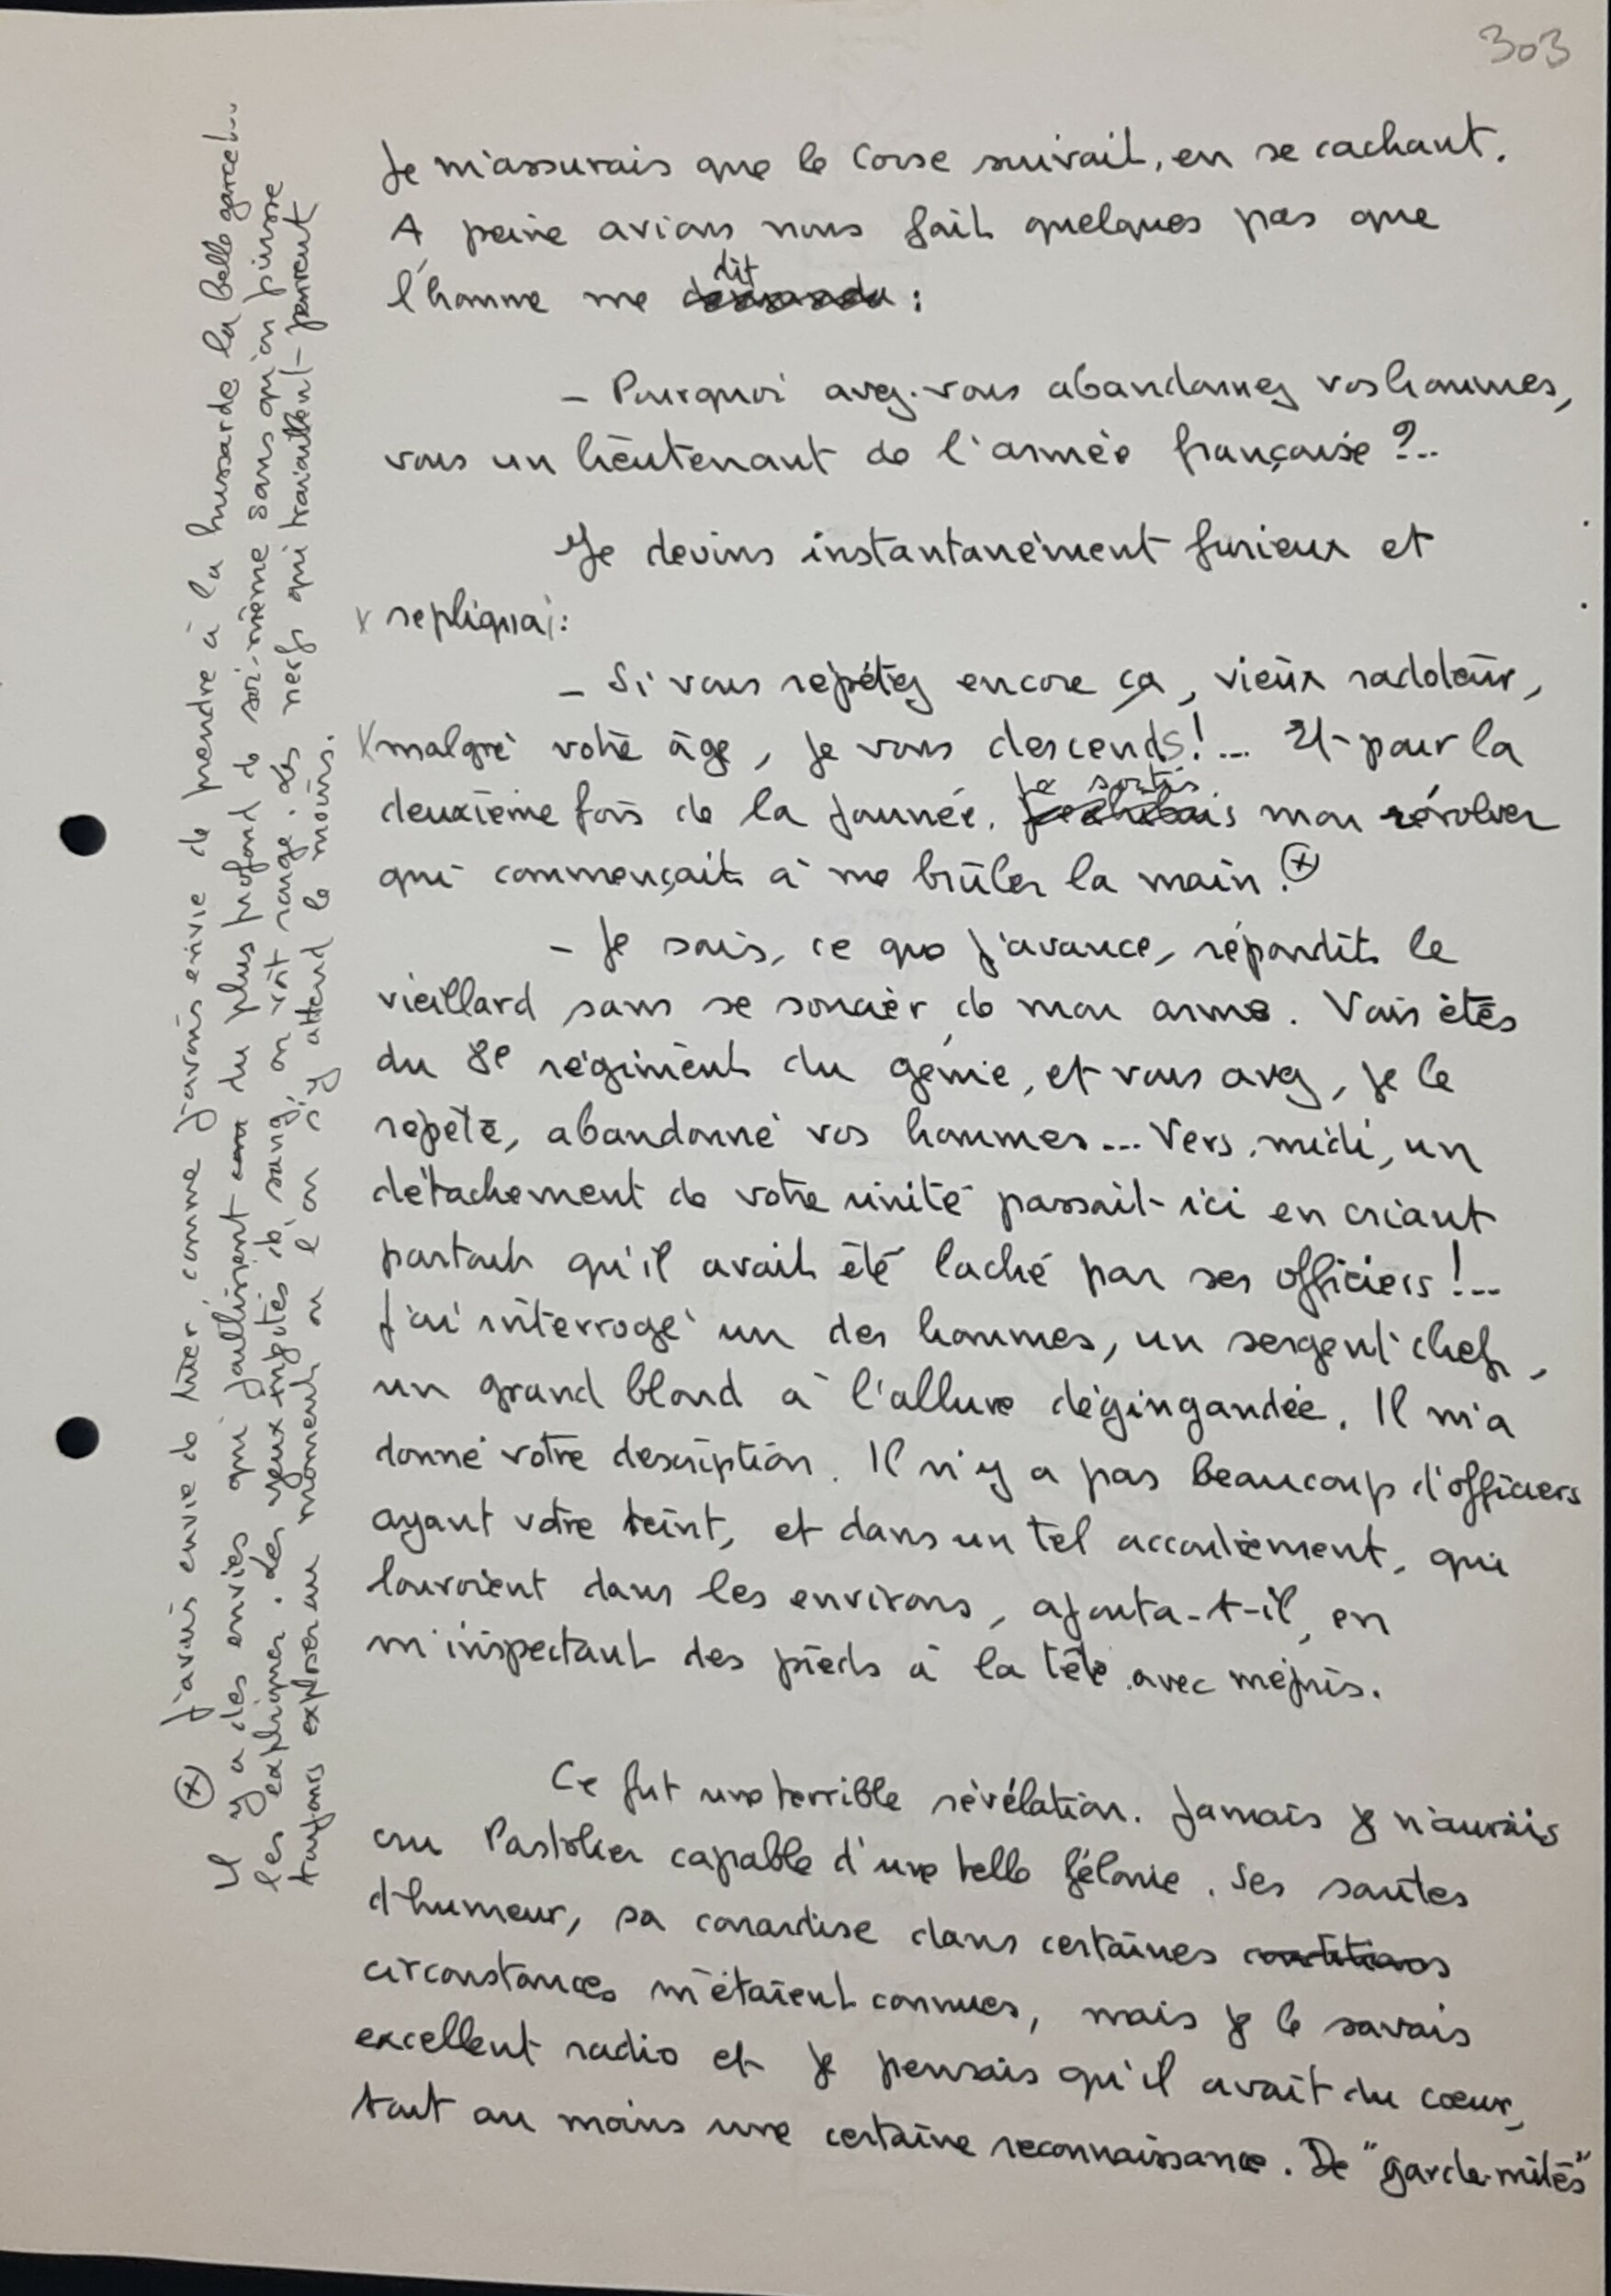 303
Je m'assurais que le Corse suivait, en se cachant.
A peine avions nous fait quelques pas que
l'homme me dit :
– Pourquoi avez-vous abandonnez vos hommes,
vous un lieutenant de l'armée française ?..
Je devins instantanément furieux et
x repliquai :
– Si vous répétez encore ça, vieux radoteur,
x malgré votre âge, je vous descends !... Et pour la
deuxième fois de la journée. Je sortis mon révolver
qui commençait à me brûler la main. ⊗
– Je sais, ce que j'avance, répondit le
vieillard sans se soucier de mon arme. Vous êtes
du 8e régiment du génie, et vous avez, je le
répète, abandonné vos hommes... Vers midi, un
détachement de votre unité passait ici en criant
partout qu'il avait été laché par ses officiers !...
J'ai interrogé un des hommes, un sergent chef,
un grand blond à l'allure dégingandée. Il m'a
donné votre description. Il n'y a pas beaucoup d'officiers
ayant votre teint, et dans un tel accoutrement, qui
louvoient dans les environs, ajouta-t-il, en
m'inspectant des pieds à la tête avec mépris.
Ce fut une terrible révélation. Jamais je n'aurais
cru Pastolier capable d'une telle félonie. Ses sautes
d'humeur, sa conardise dans certaines conditions
circonstances m'étaient connues, mais je le savais
excellent radio et je pensais qu'il avait du cœur,
tout au moins une certaine reconnaissance. De "garde-mites"
⊗ J'avais envie de tuer, comme j'avais envie de prendre à la hussarde la belle garce !...
Il y a des envies qui jaillissent du plus profond de soi-même sans qu'on puisse
les expliquer. Les yeux injectés de sang, on voit rouge. Les nerfs qui travaillent peuvent
toujours exploser au moment où l'on s'y attend le moins.